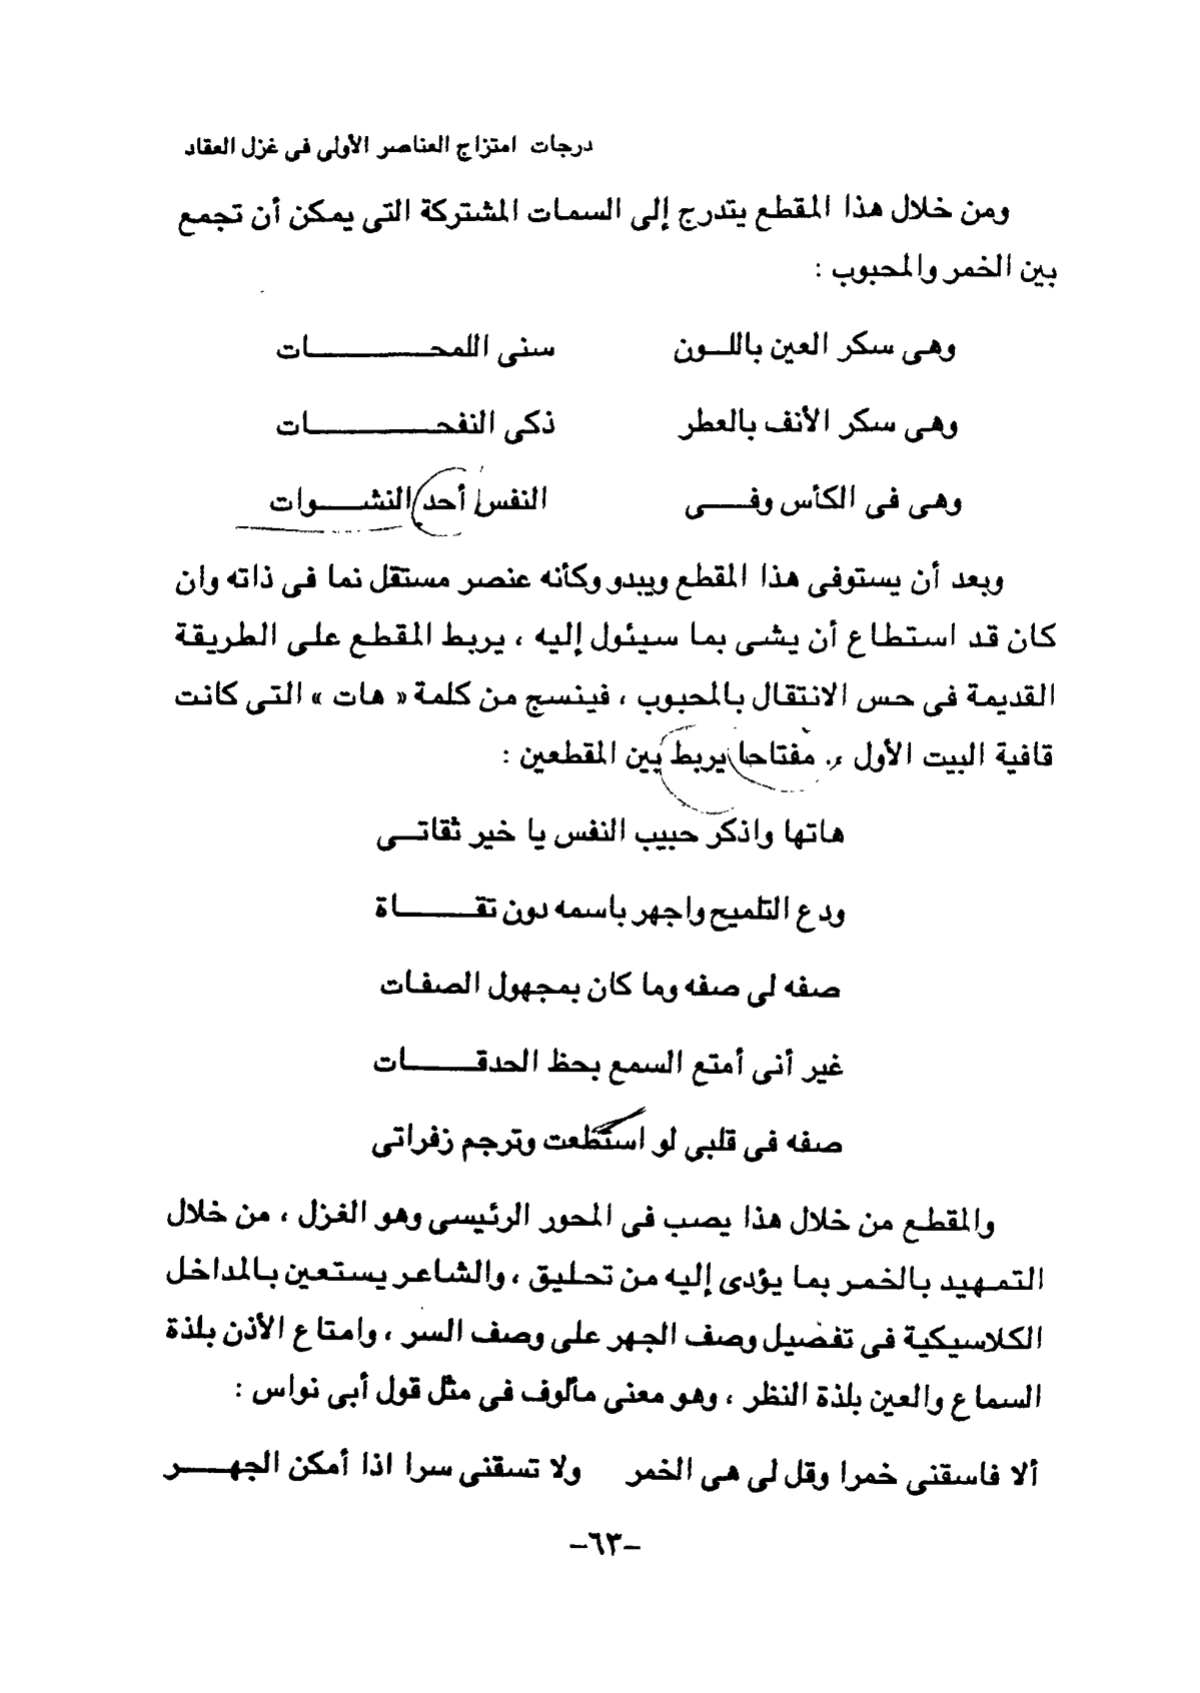 درجات امتزاج العناصر الأولى فى غزل العقاد
ومن خلال هذا المقطع يتدرج إلى السمات المشتركة التى يمكن أن تجمع
بين الخمر والمحبوب :
وهى سكر العين باللــون سنى اللمحــــــــــــات
وهى سكر الأنف بالعطر ذكى النفحــــــــــــات
وهى فى الكأس وفــــى النفس أحد النشـــوات
وبعد أن يستوفى هذا المقطع ويبدو وكأنه عنصر مستقل نما فى ذاته وان
كان قد استطاع أن يشى بما سيئول إليه ، يربط المقطع على الطريقة
القديمة فى حس الانتقال بالمحبوب ، فينسج من كلمة « هات » التى كانت
قافية البيت الأول ، مفتاحا يربط بين المقطعين :
هاتها واذكر حبيب النفس يا خير ثقاتــى
ودع التلميح واجهر باسمه دون تقـــــــاة
صفه لى صفه وما كان بمجهول الصفات
غير أنى أمتع السمع بحظ الحدقـــــــات
صفه فى قلبى لو استطعت وترجم زفراتى
والمقطع من خلال هذا يصب فى المحور الرئيسى وهو الغزل ، من خلال
التمهيد بالخمر بما يؤدى إليه من تحليق ، والشاعر يستعين بالمداخل
الكلاسيكية فى تفضيل وصف الجهر على وصف السر ، وامتاع الأذن بلذة
السماع والعين بلذة النظر ، وهو معنى مألوف فى مثل قول أبى نواس :
ألا فاسقنى خمرا وقل لى هى الخمر ولا تسقنى سرا اذا أمكن الجهــــر
–٦٣–